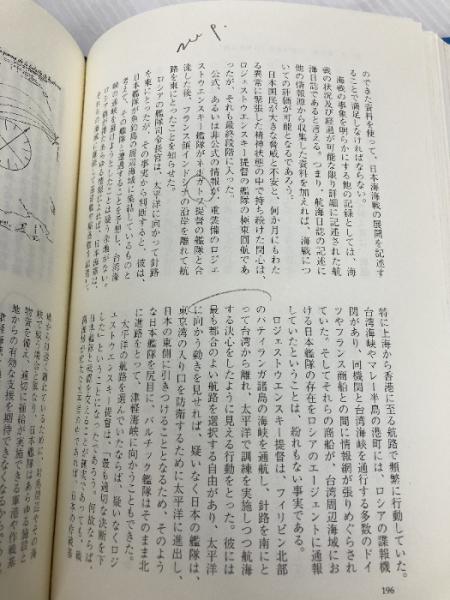 のできた資料を使って、日本海海戦の展開を記述す
ることで満足しなければならない。
海戦の事象を明らかにする他の記録としては、海
戦の状況及び経過が可能な限り詳細に記述された航
海日誌であると言える。つまり、航海日誌の記述に
他の情報源から収集した資料を加えれば、海戦につ
いての評価が可能となるであろう。
日本国民が大きな脅威と不安と、何か月にもわた
る異常に緊張した精神状態の中で持ち続けた関心は、
ロジェストウエンスキー提督の艦隊の極東回航であ
ったが、それも最終段階に入った。
公式、あるいは非公式の情報が、重装備のロジェ
ストウエンスキー艦隊がネボガトス提督の艦隊と合
流した後、フランス領インドシナの沿岸を離れて航
路を東にとったことを知らせた。
ロシアの艦隊司令長官は、太平洋に向かって針路
を東にとったが、その事実から判断すると、彼は、
日本艦隊が魚釣島の周辺海域に集結しているものと
考え、その艦隊と遭遇することを予想し、台湾海
峡の通峡を避けようとしたことは疑う余地がない。
特に上海から香港に至る航路で頻繁に行動していた。
台湾海峡やマレー半島の港町には、ロシアの諜報機
関があり、同機関と台湾海峡を通行する多数のドイ
ツやフランス商船との間に情報網が張りめぐらされ
ていた。そしてそれらの商船が、台湾周辺海域にお
ける日本艦隊の存在をロシアのエージェントに通報
していたということは、紛れもない事実である。
ロジェストウエンスキー提督は、フィリピン北部
のバティランガ諸島の海峡を通航し、針路を南にと
って台湾から離れ、太平洋で訓練を実施しつつ航海
する決心をしたように見える行動をとった。彼には
最も都合のよい航路を選択する自由があり、太平洋
に向かう動きを見せれば、疑いなく日本の艦隊は、
東京湾の入り口を防衛するために太平洋に進出し、
日本の東側に引きつけることとなるため、そのよう
な日本艦隊を尻目に、バルチック艦隊はそのまま北
に進路をとって、津軽海峡に向かうこともできた。
太平洋の航路を選んでいたならば、疑いなくロジ
ェストウエンスキー提督は、「最も適切な決断を下
した」ということになったであろう。何故ならば、
196